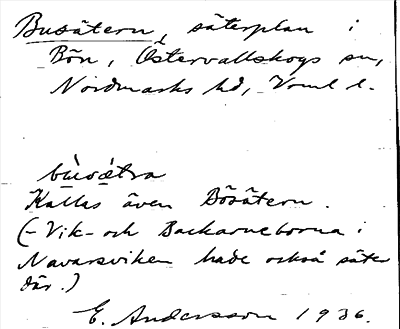 Busätern, säterplan i
Bön, Östervallskogs sn,
Nordmarks hd, Vrml l.
bùsǽtra
Kallas även Bösätern.
(- Vik- och Backarneborna i
Navarsviken hade också säter
där.)
E. Andersson 1936.